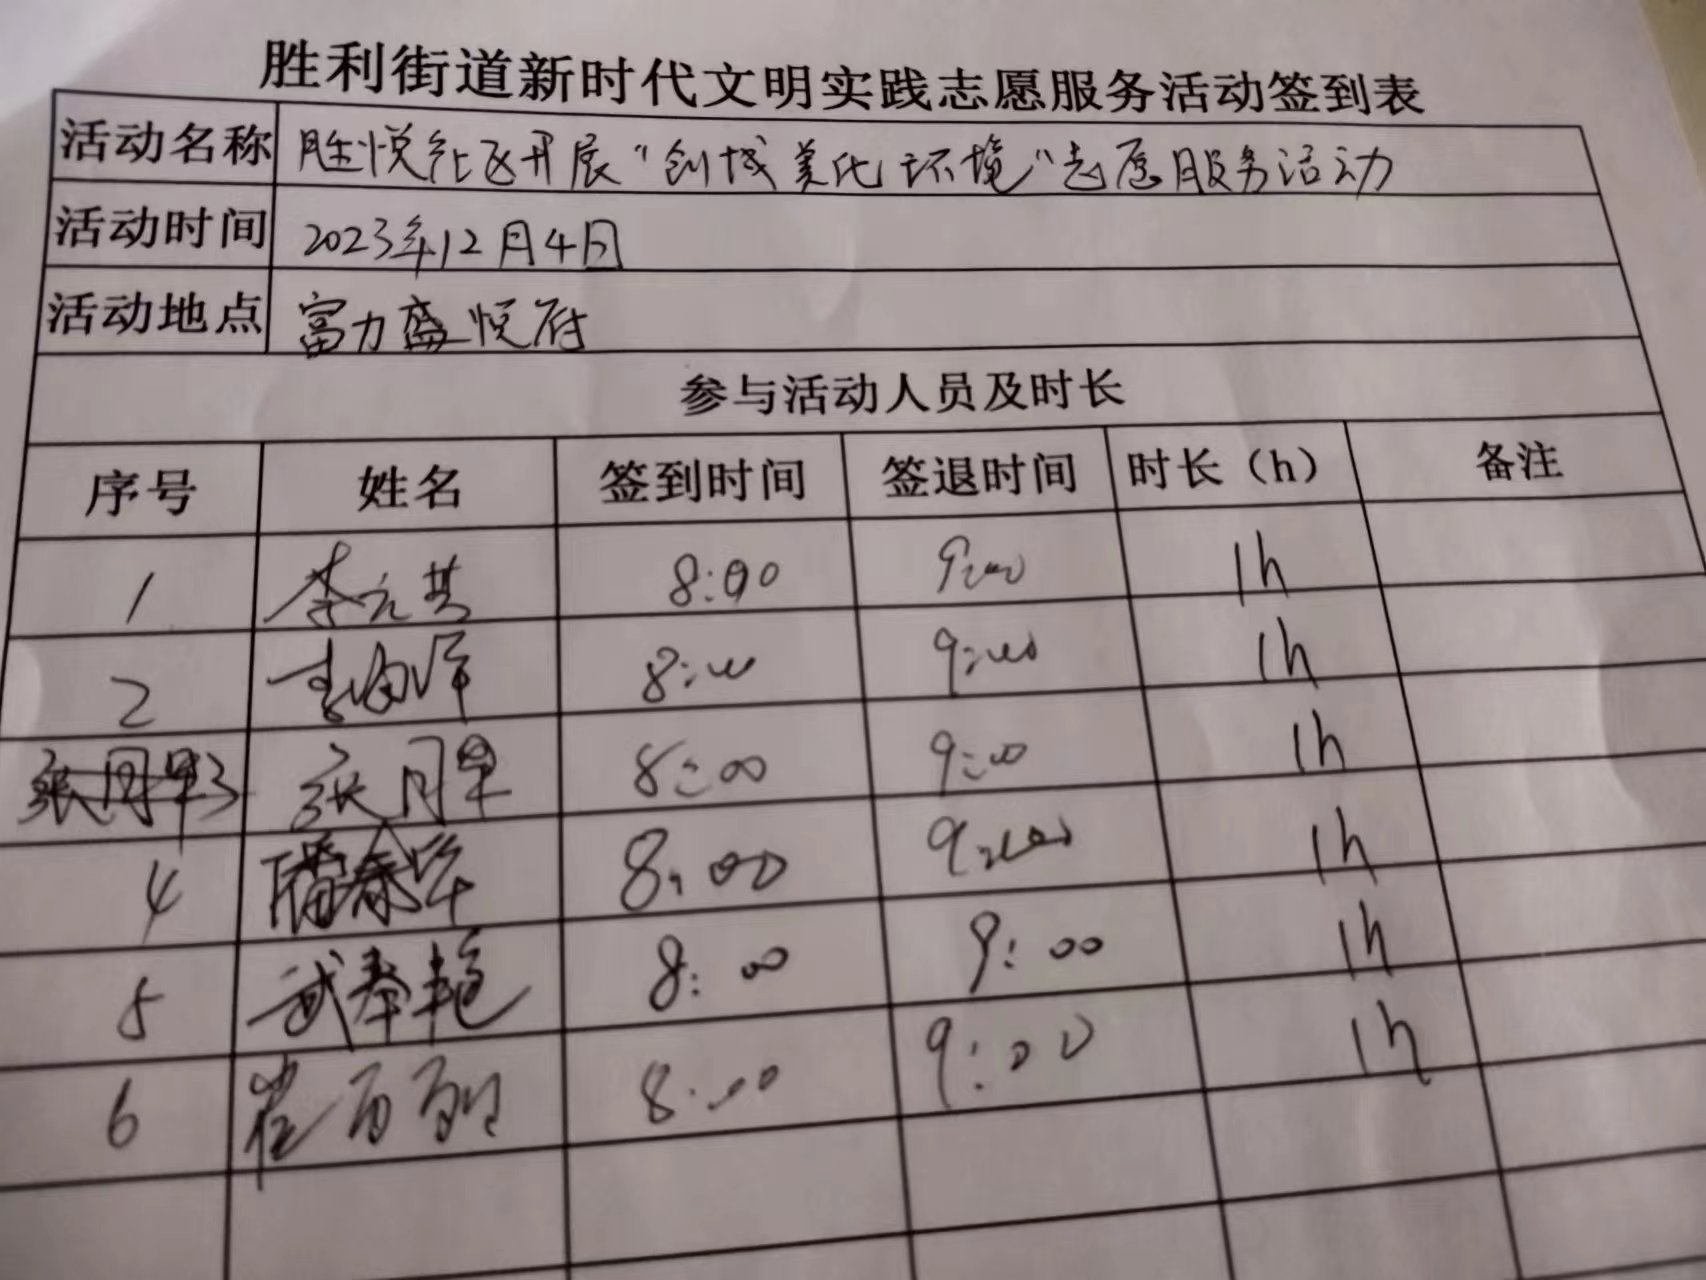 胜利街道新时代文明实践志愿服务活动签到表
活动名称 胜悦社区开展“创城美化环境”志愿服务活动
活动时间 2023年12月4日
活动地点 富力盛悦府
参与活动人员及时长
序号 姓名 签到时间 签退时间 时长（h） 备注
1 李元其 8:00 9:00 1h
2 8:00 9:00 1h
3 张月早 8:00 9:00 1h
4 8:00 9:00 1h
5 武奉艳 8:00 9:00 1h
6 崔 8:00 9:00 1h